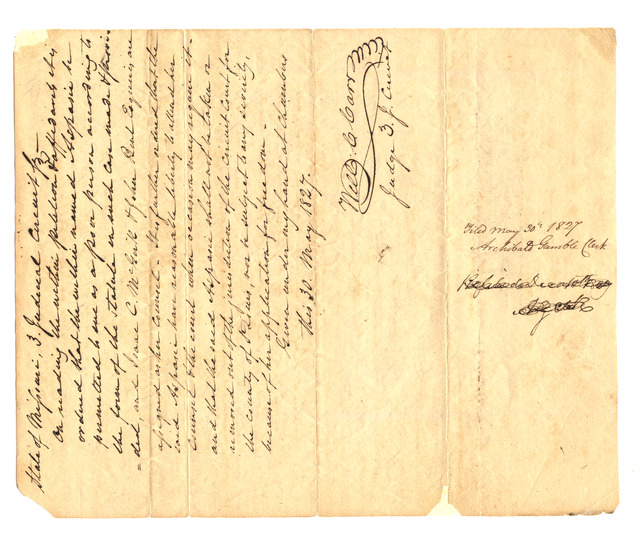 State of Missouri, 3. Judicial Circuit
On reading the within petition & affidavits it is
ordered that the within named Aspasia be
permitted to sue as a poor person according to
the form of the statute in such case made & provi
=ded, and Isaac C. McGirk & John Bent Esquires are
assigned as her counsel - It is further ordered that the
said Aspasia have reasonable liberty to attend her
counsel & the court when occasion may require it -
and that the said Aspasia shall not be taken or
removed out of the jurisdiction of the circuit court for
the county of St Louis nor be subject to any severity,
because of her application for freedom -
Given under my hand at chambers
this 30. May 1827.
Will. C. Carr
Judge 3. J. Circuit
Filed May 30th 1827
Archibald Gamble Clerk